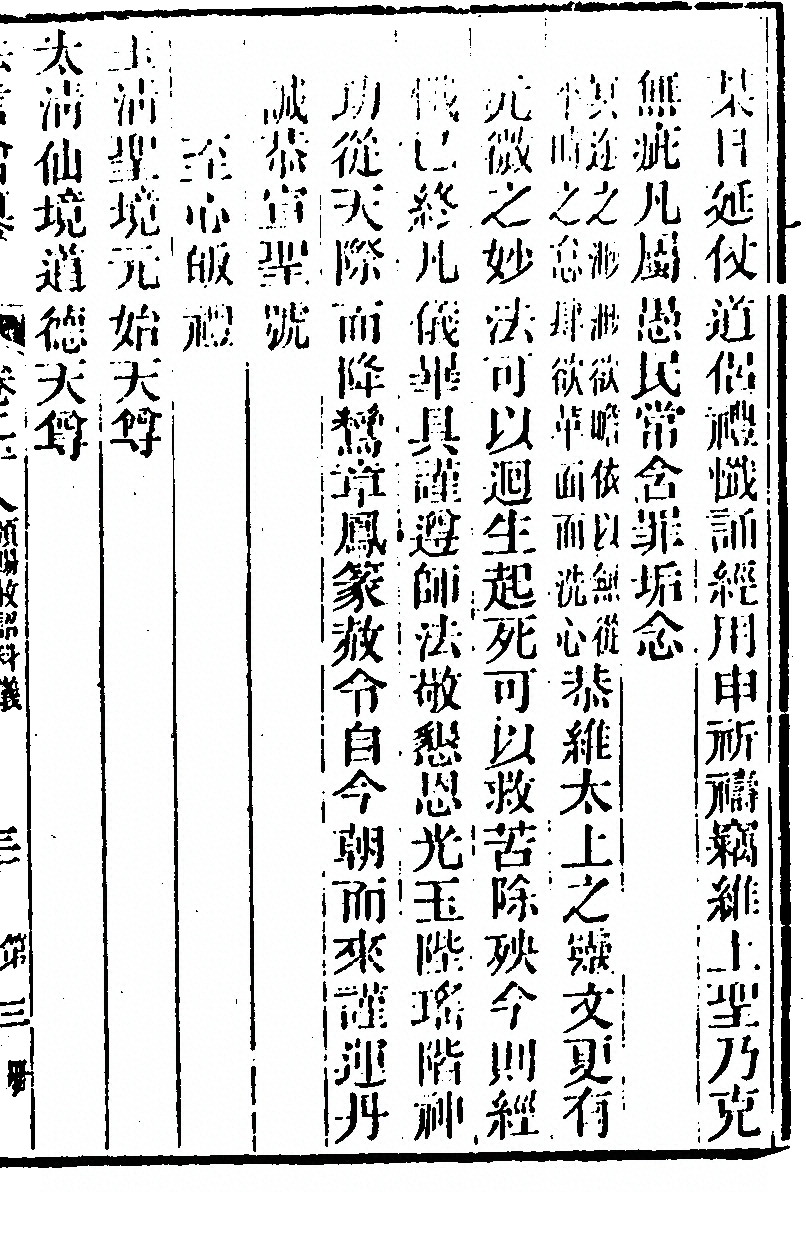 某日延仗道侶禮懺誦經用申祈禱竊維上聖乃克
無疵凡屬愚民常含罪垢念
冥迩之瀰瀰欲瞻依以無從
平時之怠肆欲革面而洗心
恭維太上之靈文更有
元微之妙法可以迴生起死可以救苦除殃今則經
懺已終凡儀畢具謹遵師法敬懇恩光玉陛瑤階神
功從天際而降鸞章鳳篆赦令自今朝而來謹運丹
誠恭宣聖號
至心皈禮
玉清聖境元始天尊
太清仙境道德天尊
頒賜赦詔科儀
三
第三冊